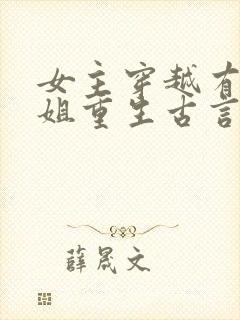 女主穿越有
姐重生古言
薛晟文